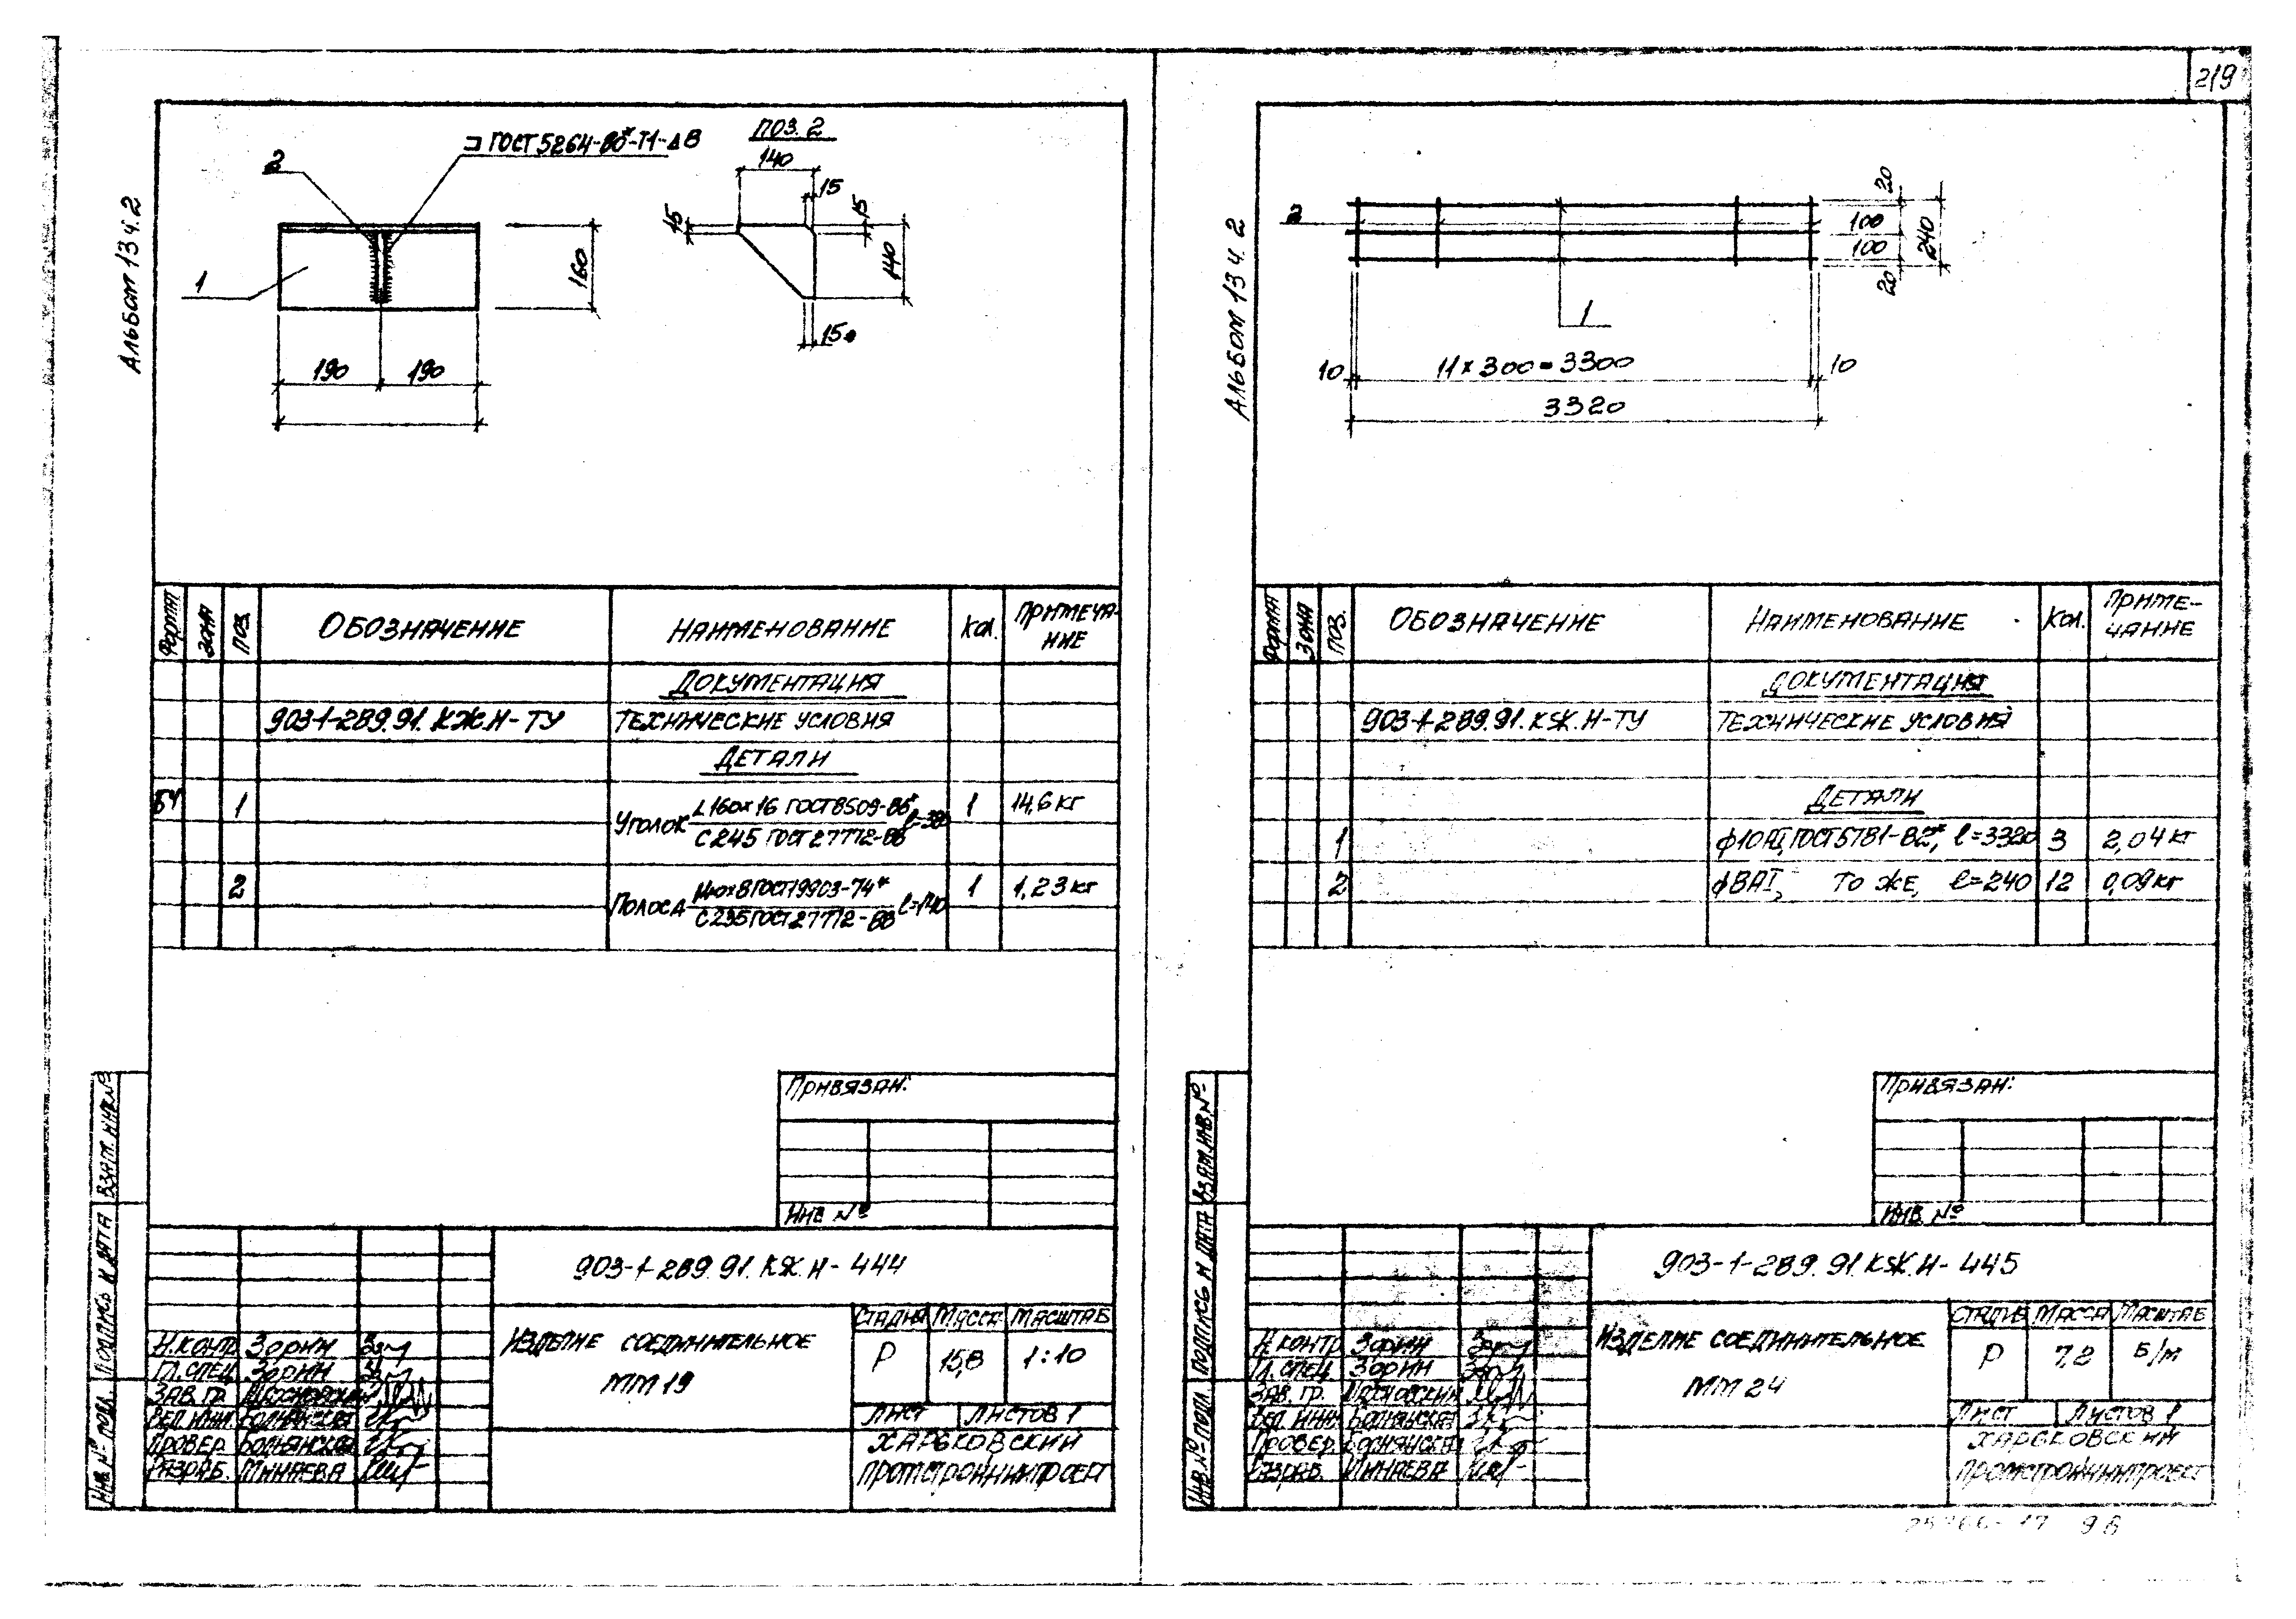 219
Альбом 13 ч. 2
ГОСТ 5264-80*-Т1-Δ8
ПОЗ. 2
2
1
160
190
190
140
15
15
15
140
15
ФОРМАТ
ЗОНА
ПОЗ.
ОБОЗНАЧЕНИЕ
НАИМЕНОВАНИЕ
Кол.
ПРИМЕЧА-
НИЕ
ДОКУМЕНТАЦИЯ
903-1-289.91. КЖ.И-ТУ
ТЕХНИЧЕСКИЕ УСЛОВИЯ
ДЕТАЛИ
БЧ
1
Уголок L160х16 ГОСТ 8509-86*
С245 ГОСТ 27772-88 ℓ=380
1
14,6 кг
2
Полоса 140х8 ГОСТ 19903-74*
С235 ГОСТ 27772-88 ℓ=140
1
1,23 кг
ПРИВЯЗАН:
ИНВ №
903-1-289.91. КЖ.И-444
ИЗДЕЛИЕ СОЕДИНИТЕЛЬНОЕ
ММ 19
СТАДИЯ
МАССА
МАСШТАБ
Р
15,8
1:10
ЛИСТ
ЛИСТОВ 1
ХАРЬКОВСКИЙ
ПРОМСТРОЙНИИПРОЕКТ
Н.КОНТР. ЗОРИН
ГЛ.СПЕЦ. ЗОРИН
ЗАВ. ГР.
ВЕД. ИНЖ.
ПРОВЕР.
РАЗРАБ. МИНАЕВА
ВЗАМ. ИНВ.№
ПОДПИСЬ И ДАТА
ИНВ.№ ПОДЛ.
Альбом 13 ч. 2
2
1
20
100
100
20
240
10
11 х 300 = 3300
10
3320
ФОРМАТ
ЗОНА
ПОЗ.
ОБОЗНАЧЕНИЕ
НАИМЕНОВАНИЕ
Кол.
ПРИМЕ-
ЧАНИЕ
ДОКУМЕНТАЦИЯ
903-1-289.91. КЖ.И-ТУ
ТЕХНИЧЕСКИЕ УСЛОВИЯ
ДЕТАЛИ
1
ф10АI, ГОСТ 5781-82*, ℓ=3320
3
2,04 кг
2
ф8АI, ТО ЖЕ, ℓ=240
12
0,09 кг
ПРИВЯЗАН:
ИНВ. №
903-1-289.91. КЖ.И-445
ИЗДЕЛИЕ СОЕДИНИТЕЛЬНОЕ
ММ 24
СТАДИЯ
МАССА
МАСШТАБ
Р
7,2
Б/м
ЛИСТ
ЛИСТОВ 1
ХАРЬКОВСКИЙ
ПРОМСТРОЙНИИПРОЕКТ
Н.КОНТР. ЗОРИН
ГЛ.СПЕЦ. ЗОРИН
ЗАВ. ГР.
ВЕД. ИНЖ.
ПРОВЕР.
РАЗРАБ. МИНАЕВА
ВЗАМ. ИНВ.№
ПОДПИСЬ И ДАТА
ИНВ.№ ПОДЛ.